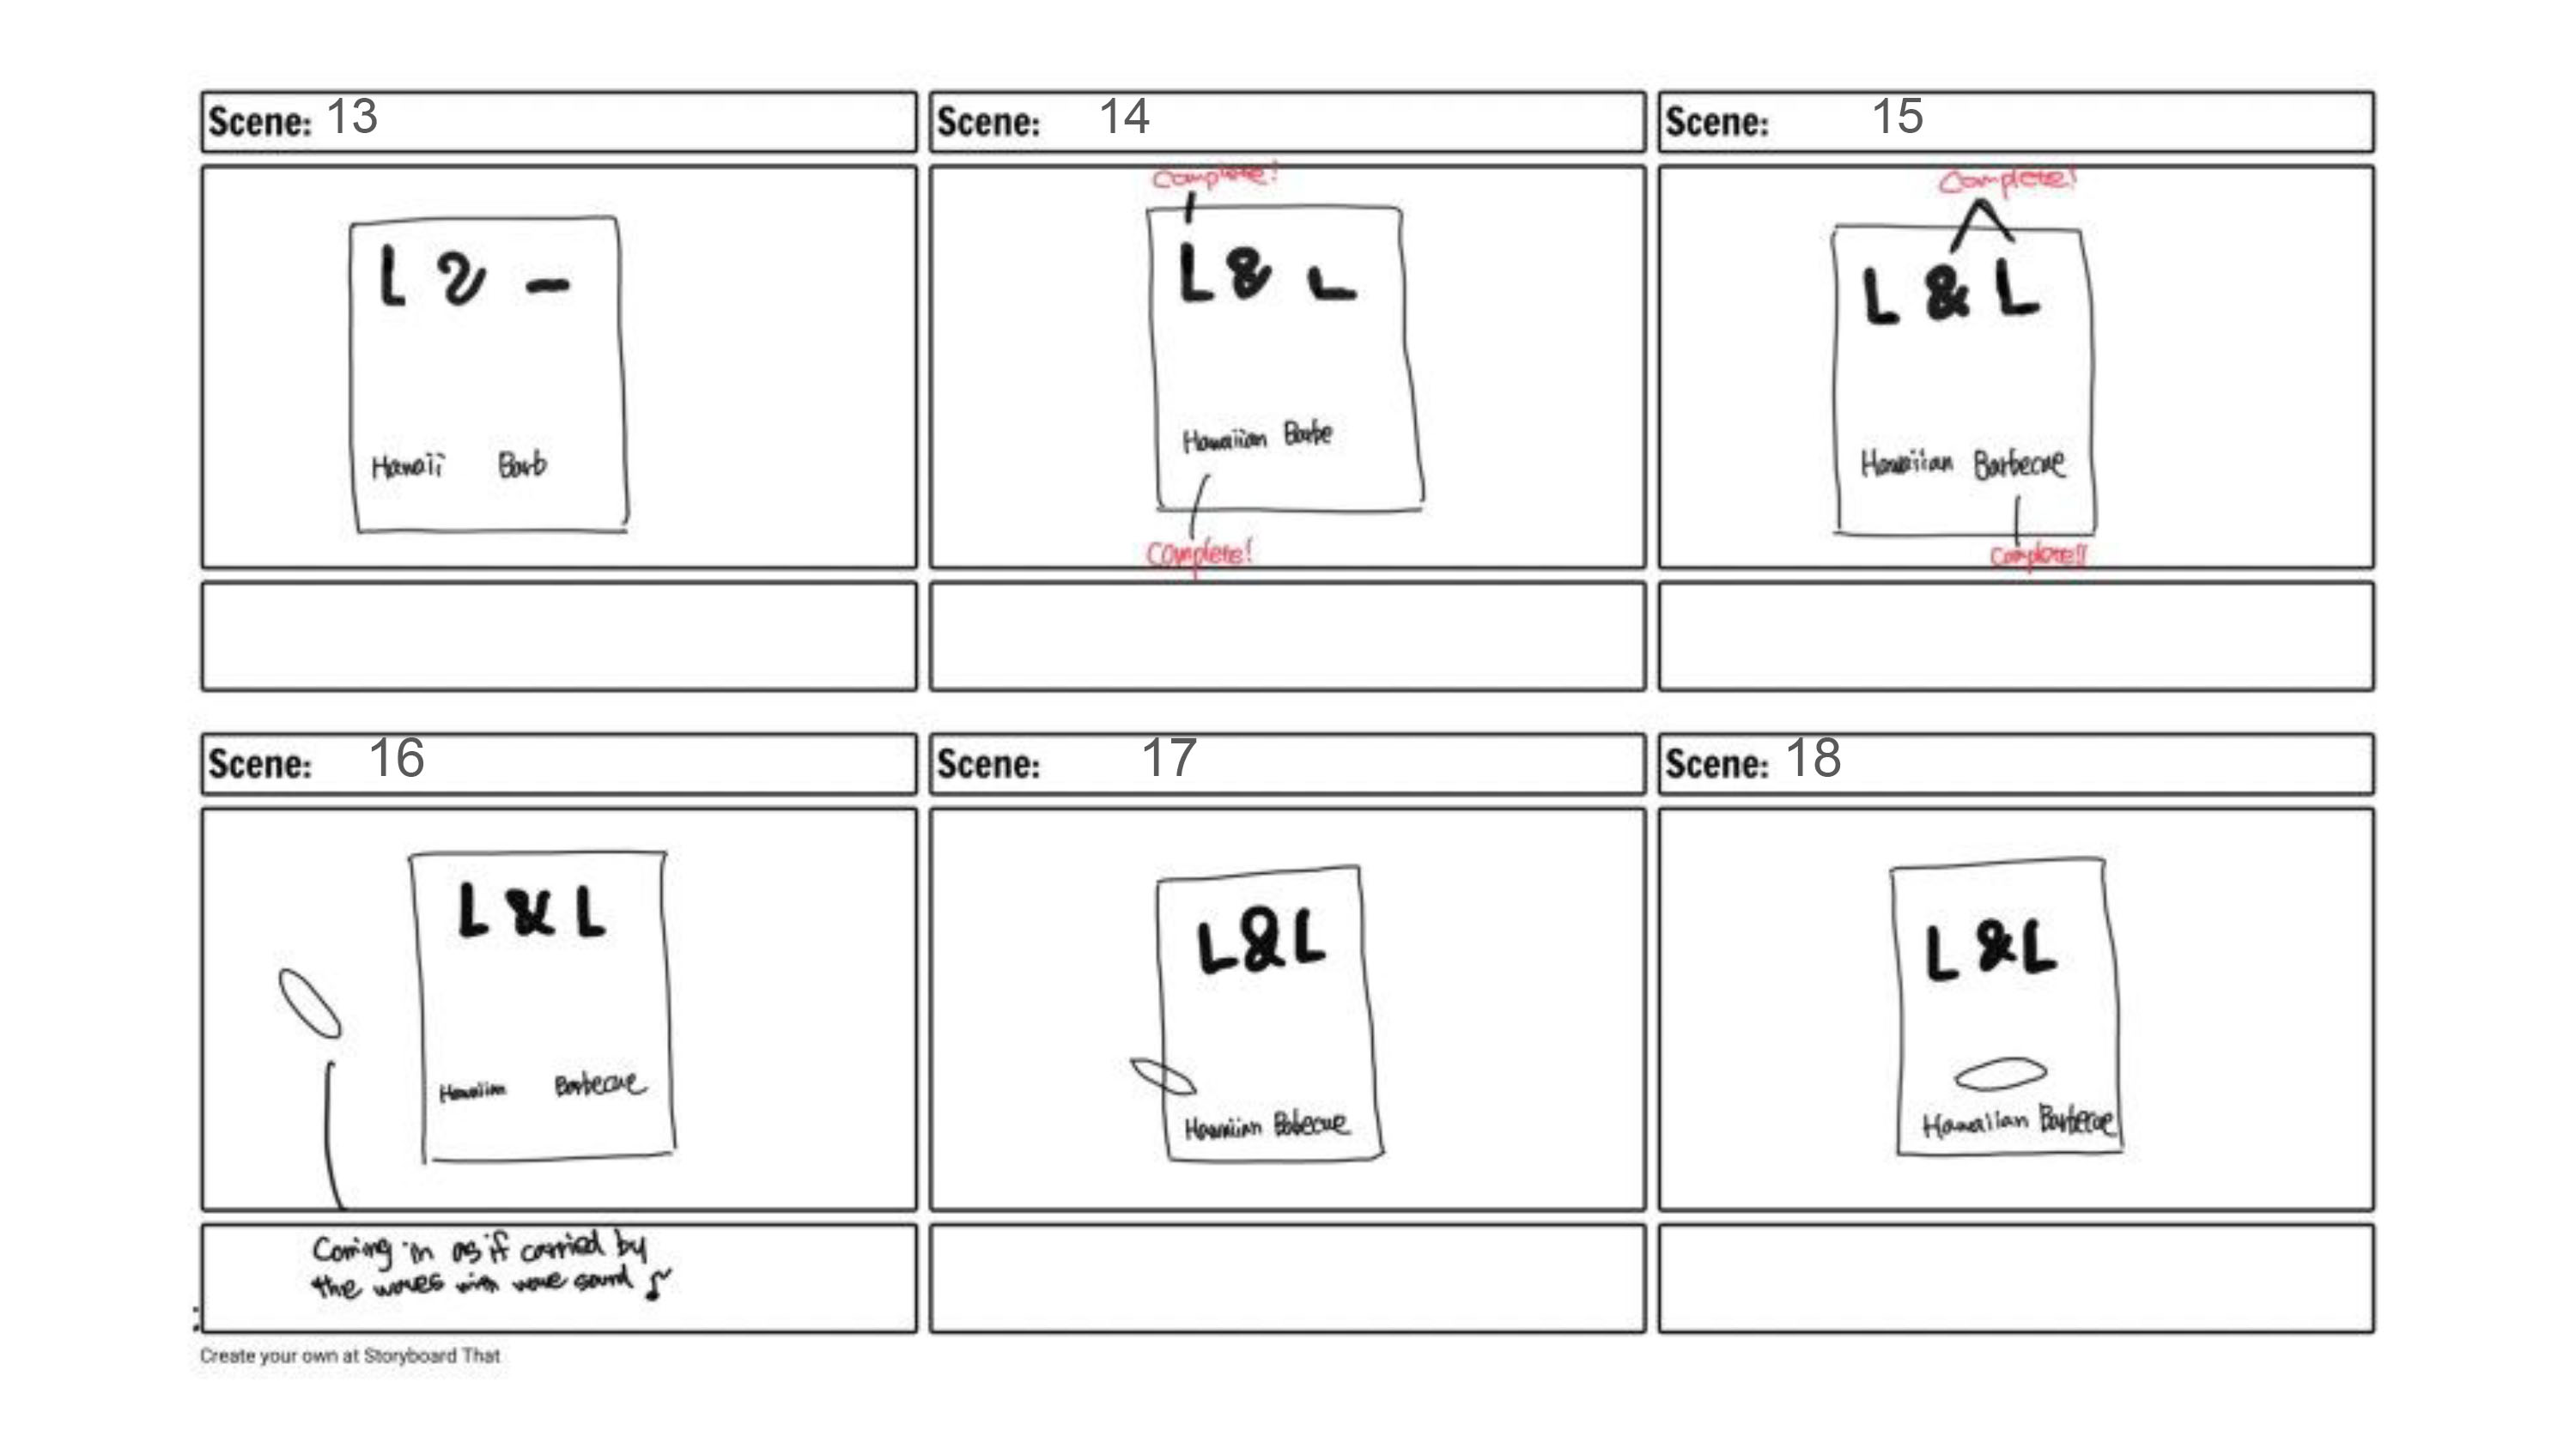 Scene: 13
L & -
Hawaii Barb
Scene: 14
Complete!
L & L
Hawaiian Barbe
Complete!
Scene: 15
Complete!
L & L
Hawaiian Barbecue
Complete!!
Scene: 16
L & L
Hawaiian Barbecue
Coming in as if carried by
the waves with wave sound ♪
Scene: 17
L & L
Hawaiian Babecue
Scene: 18
L & L
Hawaiian Barbecue
Create your own at Storyboard That